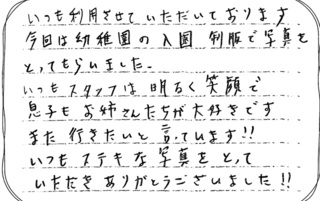 いつも利用させていただいております
今回は幼稚園の入園制服で写真を
とってもらいました。
いつもスタッフは明るく笑顔で
息子もお姉さんたちが大好きです
また行きたいと言っています!!
いつもステキな写真をとって
いただきありがとうございました!!